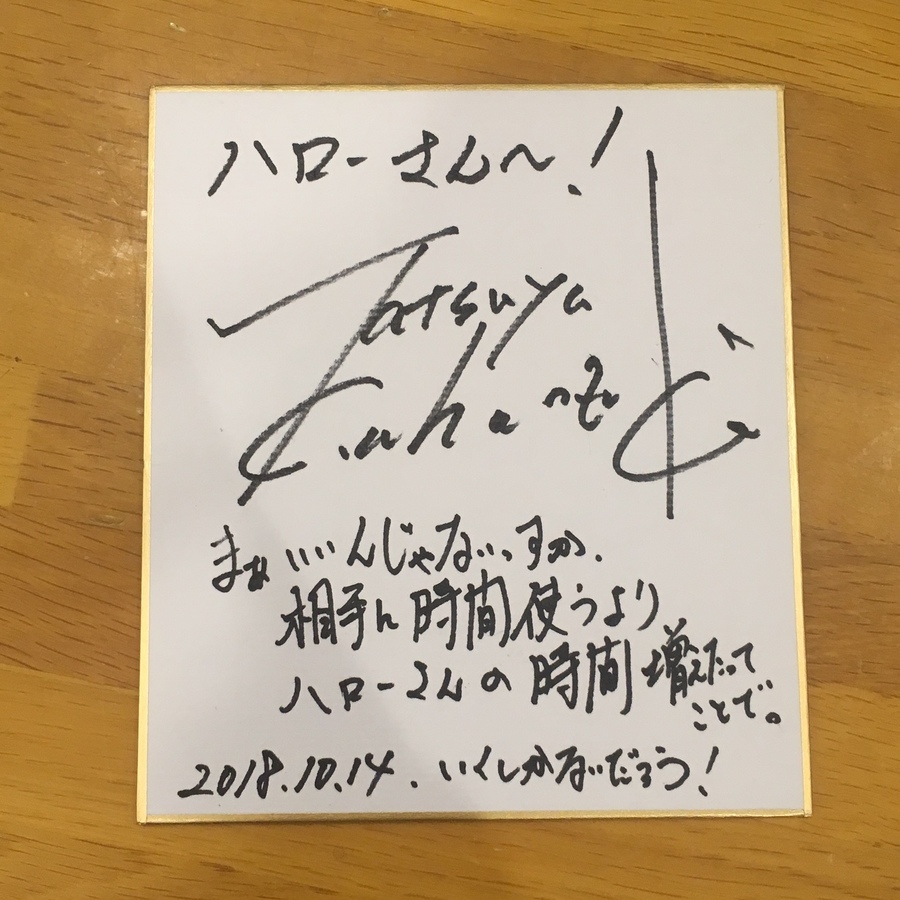 ハローさんへ!
Tatsuya
まぁいいんじゃないっすか.
相手に時間使うより
ハローさんの時間増えたって
ことで。
2018.10.14. いくしかないだろう!